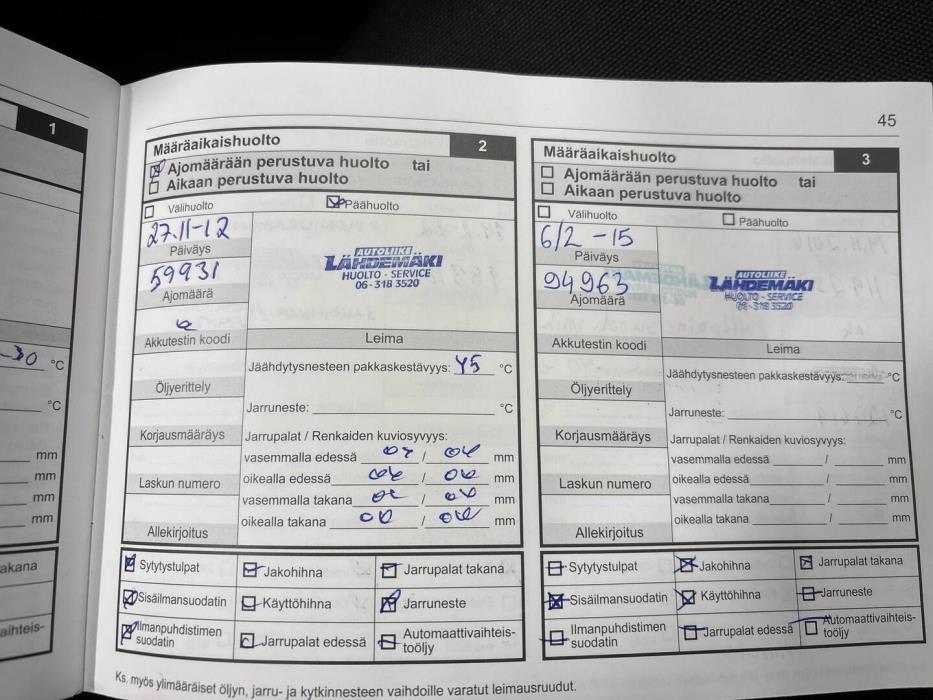 45
1
-30 °C
°C
mm
mm
mm
mm
akana
aihteis-
Määräaikaishuolto 2
Ajomäärään perustuva huolto tai
Aikaan perustuva huolto
Välihuolto Päähuolto
27.11-12
Päiväys
59931
Ajomäärä
Akkutestin koodi
Öljyerittely
Korjausmääräys
Laskun numero
Allekirjoitus
AUTOLIIKE
LÄHDEMÄKI
HUOLTO - SERVICE
06-318 3520
Leima
Jäähdytysnesteen pakkaskestävyys: 45 °C
Jarruneste: °C
Jarrupalat / Renkaiden kuviosyvyys:
vasemmalla edessä / ok mm
oikealla edessä ok / ok mm
vasemmalla takana / ok mm
oikealla takana ok / ok mm
Sytytystulpat Jakohihna Jarrupalat takana
Sisäilmansuodatin Käyttöhihna Jarruneste
Ilmanpuhdistimen
suodatin Jarrupalat edessä Automaattivaihteis-
toöljy
Määräaikaishuolto 3
Ajomäärään perustuva huolto tai
Aikaan perustuva huolto
Välihuolto Päähuolto
6/2 -15
Päiväys
94963
Ajomäärä
Akkutestin koodi
Öljyerittely
Korjausmääräys
Laskun numero
Allekirjoitus
AUTOLIIKE
LÄHDEMÄKI
HUOLTO - SERVICE
06-318 3520
Leima
Jäähdytysnesteen pakkaskestävyys: °C
Jarruneste: °C
Jarrupalat / Renkaiden kuviosyvyys:
vasemmalla edessä / mm
oikealla edessä / mm
vasemmalla takana / mm
oikealla takana / mm
Sytytystulpat Jakohihna Jarrupalat takana
Sisäilmansuodatin Käyttöhihna Jarruneste
Ilmanpuhdistimen
suodatin Jarrupalat edessä Automaattivaihteis-
toöljy
Ks. myös ylimääräiset öljyn, jarru- ja kytkinnesteen vaihdoille varatut leimausruudut.